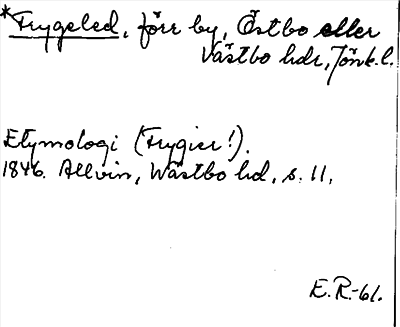 *Frygeled, förr by, Östbo eller
Västbo hdr, Jönk.l.
Etymologi (Frygier!).
1846. Allvin, Wästbo hd, s. 11.
E.R.-61.